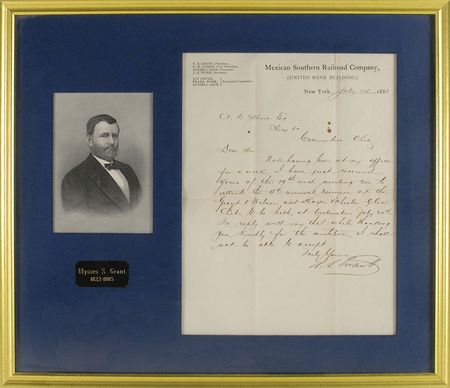 U. S. GRANT, President.
Mexican Southern Railroad Company,
(UNITED BANK BUILDING,)
RUSSELL SAGE, Treasurer.
JAY GOULD,
RUSSELL SAGE
Executive Committee.
New York, July 188
Esq
Columbus Ohio
Dear Sir:
Not having been at my office
for a week, I have just received
yours of the 19th inst. inviting me to
attend the 4th annual reunion of the
Grant &
Club to be held at Columbus July
In reply will say that while thanking
you kindly for the invitation, I shall
not be able to accept.
Truly Yours
U. S. Grant
Ulysses S. Grant
1822-1885